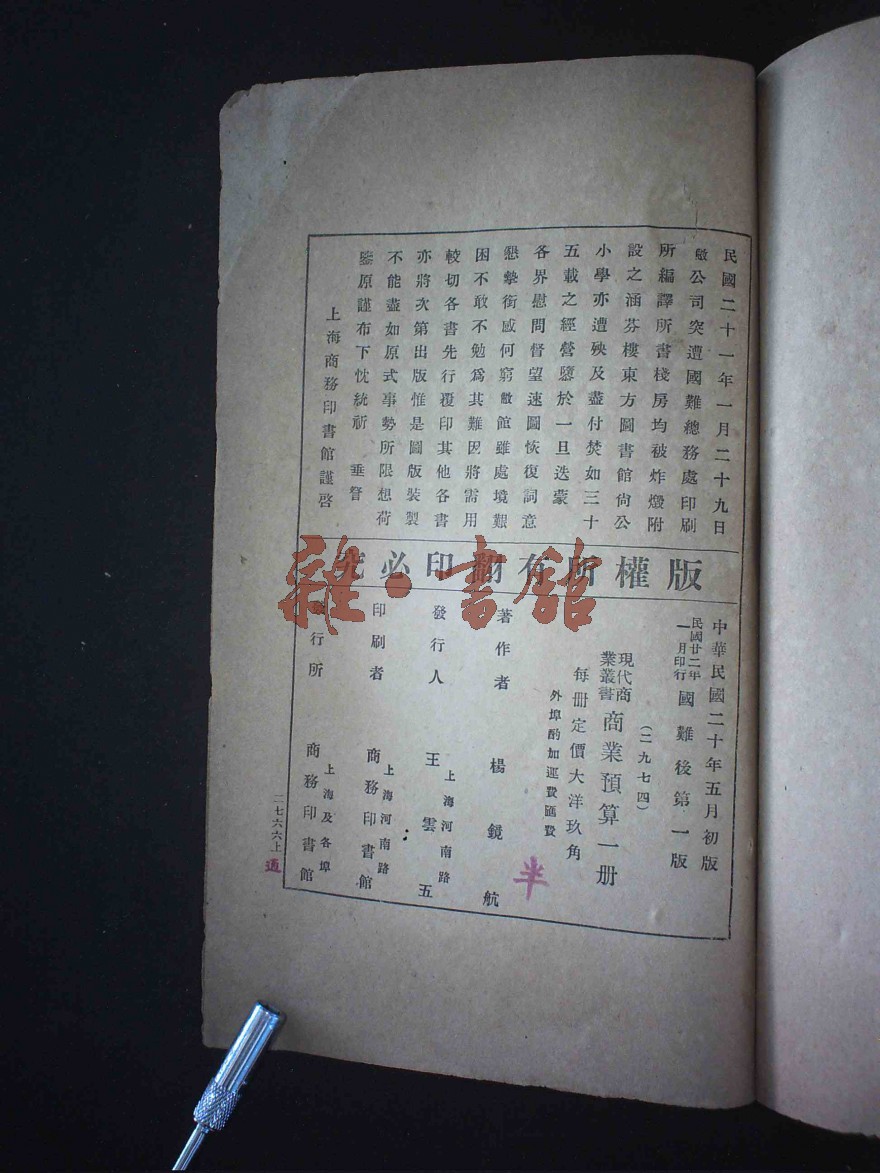 民國二十一年一月二十九日
敝公司突遭國難總務處印刷
所編譯所書棧房均被炸燬附
設之涵芬樓東方圖書館尙公
小學亦遭殃及盡付焚如三十
五載之經營隳於一旦迭蒙
各界慰問督望速圖恢復詞意
懇摯銜感何窮敝館雖處境艱
困不敢不勉爲其難因將需用
較切各書先行覆印其他各書
亦將次第出版惟是圖版裝製
不能盡如原式事勢所限想荷
鑒原謹布下忱統祈 垂詧
上海商務印書館謹啓
版權所有翻印必究
中華民國二十年五月初版
民國廿二年一月印行 國難後第一版
(二九七四)
現代商業叢書 商業預算一册
每册定價大洋玖角
外埠酌加運費匯費
著作者 楊鏡航
發行人 上海河南路 王雲五
印刷者 上海河南路 商務印書館
發行所 上海及各埠 商務印書館
二七六六上
半
雜·書館